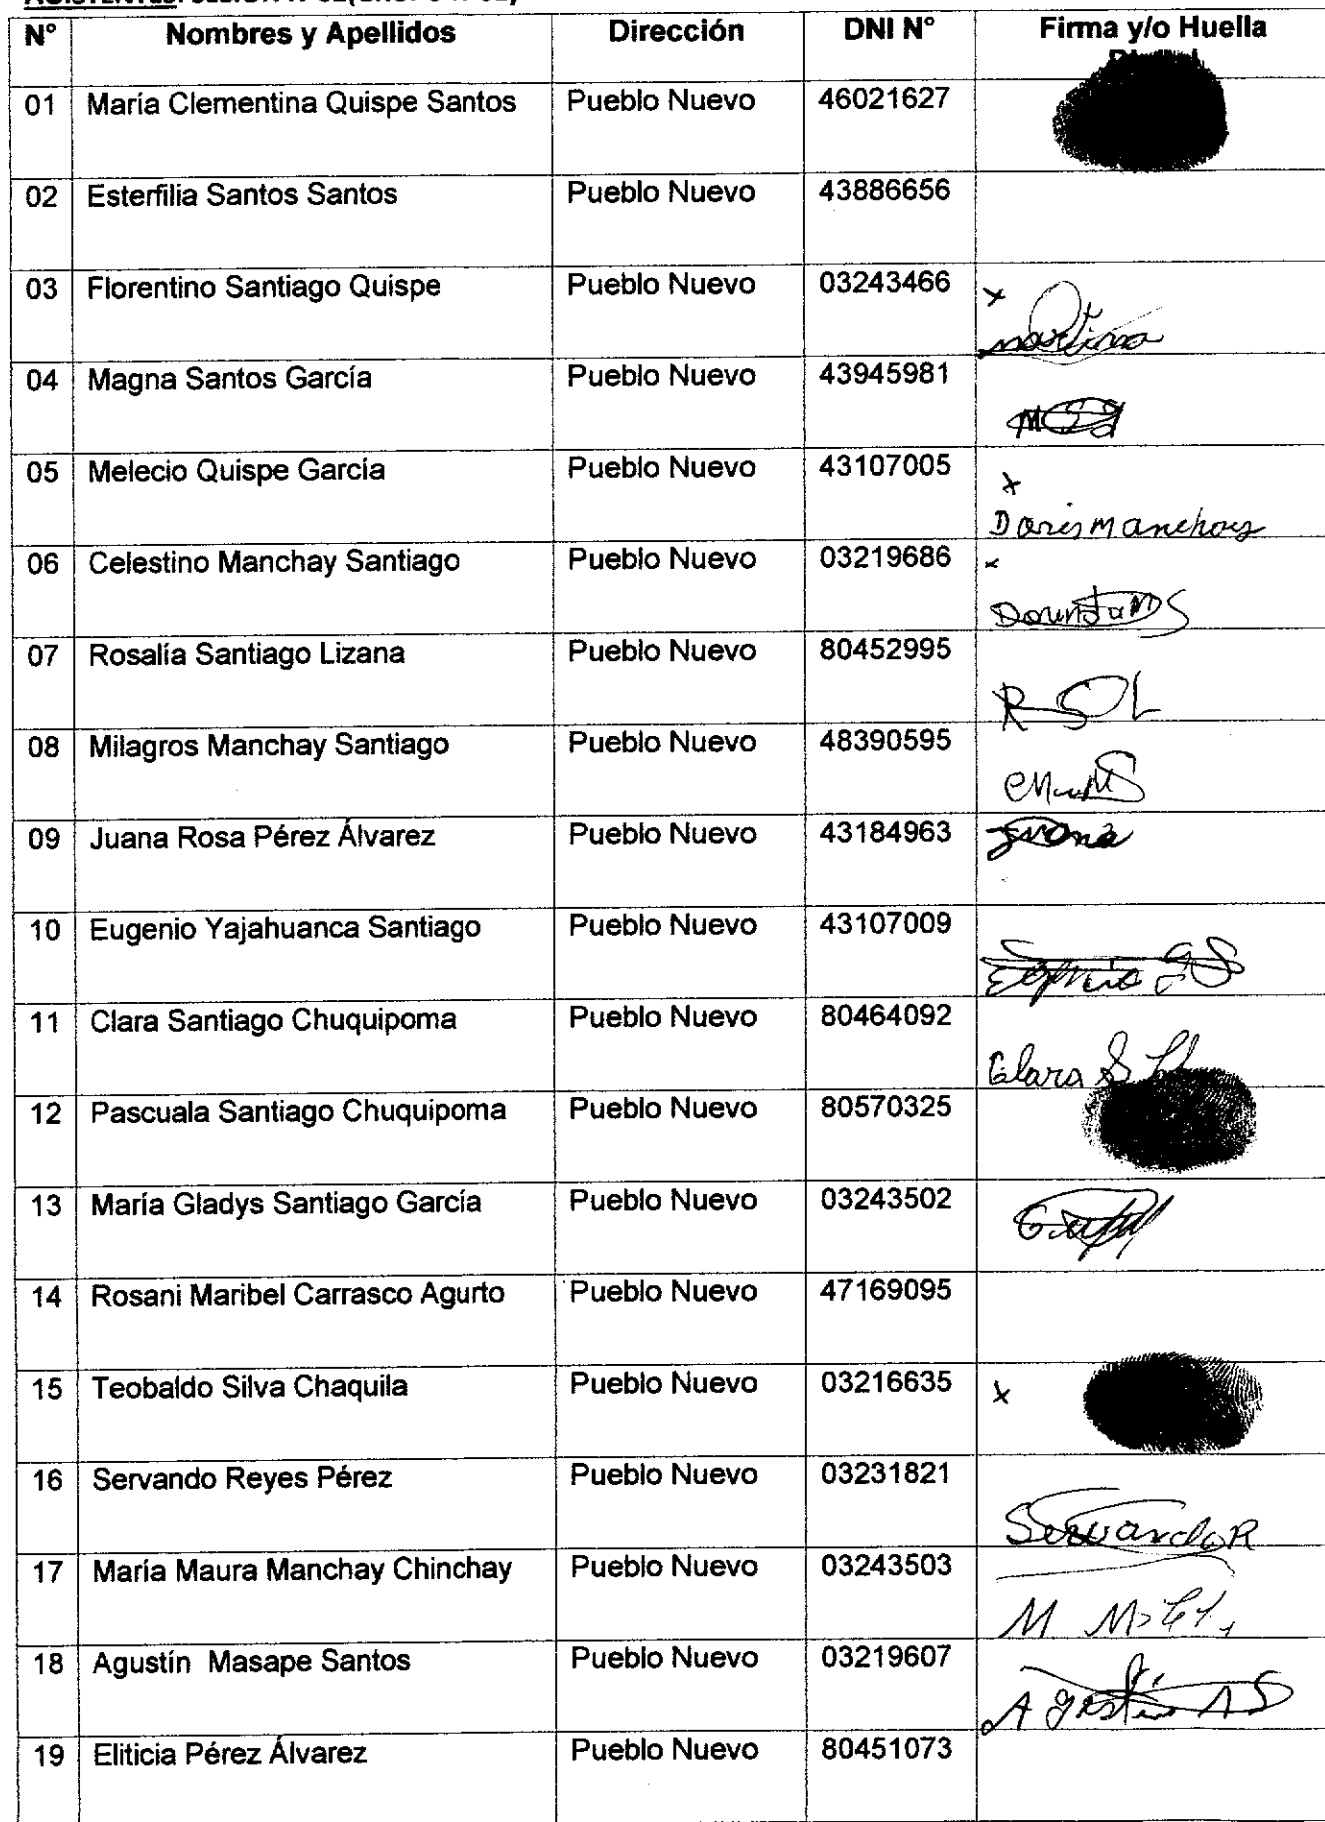 N° Nombres y Apellidos Dirección DNI N° Firma y/o Huella
01 María Clementina Quispe Santos Pueblo Nuevo 46021627
02 Esterfilia Santos Santos Pueblo Nuevo 43886656
03 Florentino Santiago Quispe Pueblo Nuevo 03243466 x
martina
04 Magna Santos García Pueblo Nuevo 43945981
05 Melecio Quispe García Pueblo Nuevo 43107005 x
Doris Manchay
06 Celestino Manchay Santiago Pueblo Nuevo 03219686 x
07 Rosalía Santiago Lizana Pueblo Nuevo 80452995
R S L
08 Milagros Manchay Santiago Pueblo Nuevo 48390595
09 Juana Rosa Pérez Álvarez Pueblo Nuevo 43184963
10 Eugenio Yajahuanca Santiago Pueblo Nuevo 43107009
11 Clara Santiago Chuquipoma Pueblo Nuevo 80464092
Clara S
12 Pascuala Santiago Chuquipoma Pueblo Nuevo 80570325
13 María Gladys Santiago García Pueblo Nuevo 03243502
14 Rosani Maribel Carrasco Agurto Pueblo Nuevo 47169095
15 Teobaldo Silva Chaquila Pueblo Nuevo 03216635 x
16 Servando Reyes Pérez Pueblo Nuevo 03231821
Servando R
17 María Maura Manchay Chinchay Pueblo Nuevo 03243503
18 Agustín Masape Santos Pueblo Nuevo 03219607
19 Eliticia Pérez Álvarez Pueblo Nuevo 80451073